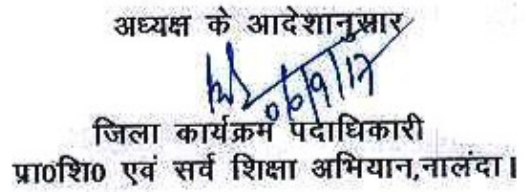 अध्यक्ष के आदेशानुसार
06/9/17
जिला कार्यक्रम पदाधिकारी
प्रा0शि0 एवं सर्व शिक्षा अभियान,नालंदा।